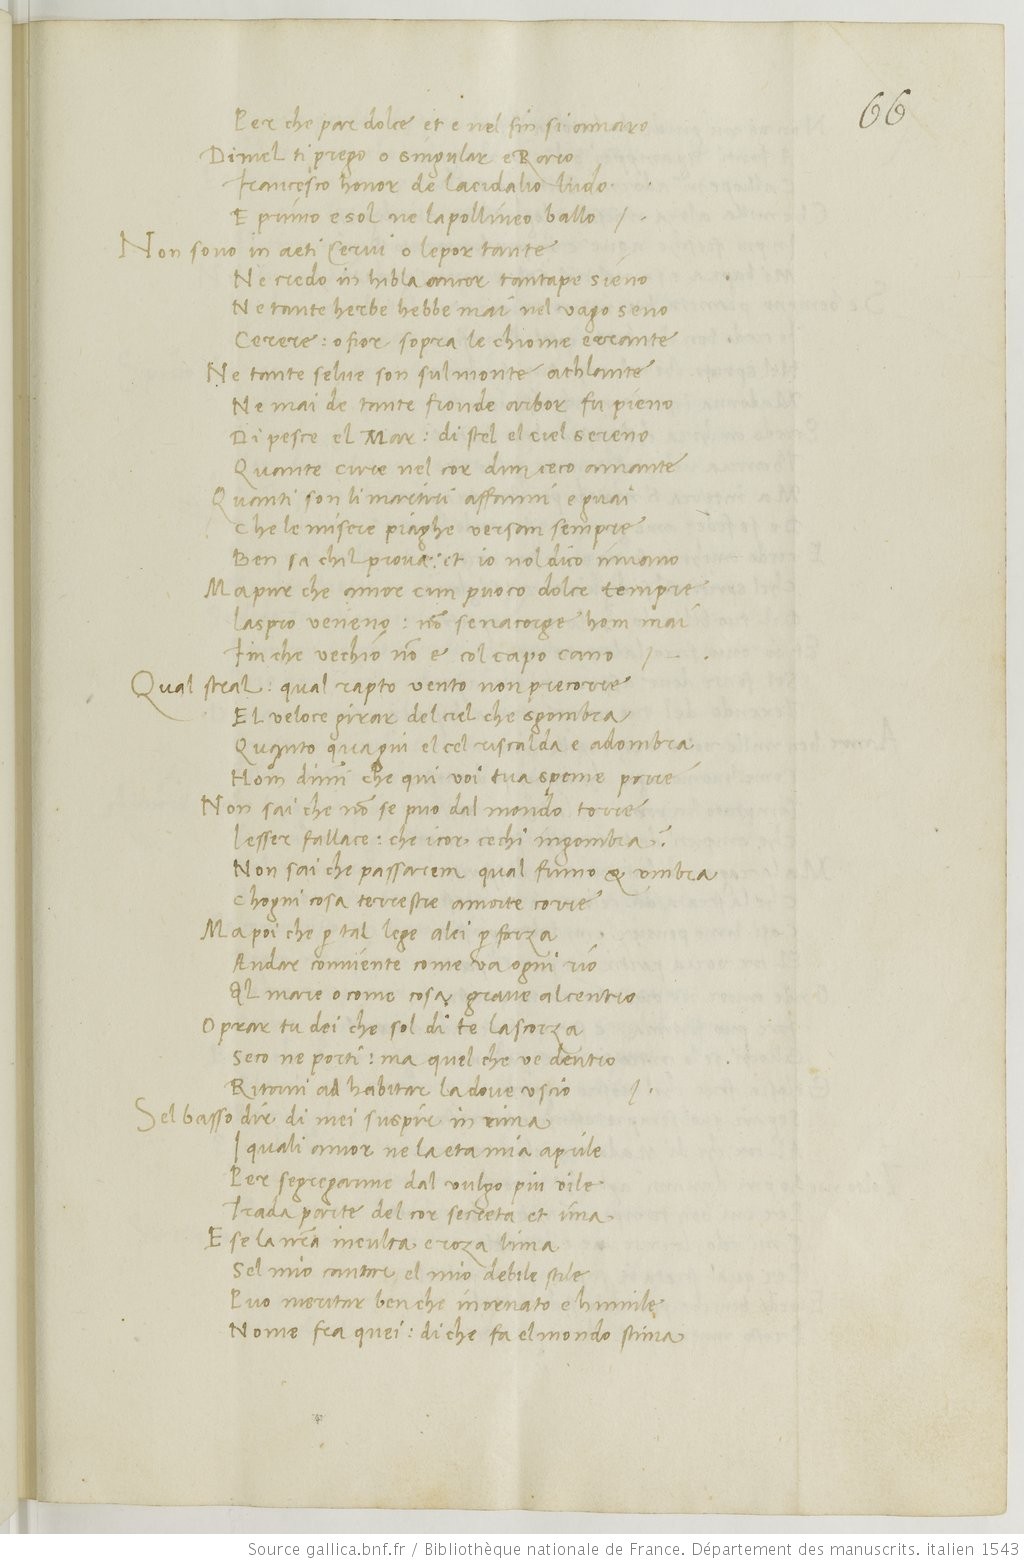 66
Per che par dolce et e nel fin si amaro
Dimel ti prego o singular e Raro
Francesco honor de lacidalio ludo
E primo e sol ne lapollineo ballo
Non sono in aeti Cervi o lepor tante
Ne credo in hibla ancor tantape sieno
Ne tante herbe hebbe mai nel vago seno
Cerere : o fior sopra le chiome errante
Ne tante selve son sul monte athlante
Ne mai de tante fronde arbor fu pieno
Di pesce el Mar : di stel el ciel sereno
Quante cure nel cor dun ceco amante
Quanti son li martiri affanni e guai
Che le misere piaghe versan sempre
Ben sa chil prova : et io nol dico invano
Ma pur che amore cun puoco dolce tempre
laspro veneno : nō senacorge hom mai
Fin che vechio nō e col capo cano
Qual stral : qual rapto vento non precorre
El veloce girar del ciel che sgombra
Quanto quagiu el cel riscalda e adombra
Hom dimi che qui voi tua speme porre
Non sai che nō se puo dal mondo torre
lesser fallace : che icor cechi ingombra ?
Non sai che passarem qual fumo & umbra
Chogni cosa terrestre amorte corre
Ma poi che p tal lege alei p forza
Andar conviente come va ogni rio
Al mare o come cosa grave al centro
Oprar tu dei che sol di te la scorza
Seco ne porti : ma quel che ve dentro
Ritorni ad habitar la dove uscio
Sel basso dir di mei suspir in rima
I quali amor ne la eta mia aprile
Per segregarme dal vulgo piu vile
Trada parte del cor secreta et ima
E se la nr̄a inculta e roza lima
Sel mio cantar el mio debile stile
Puo meritar ben che inornato e humile
Nome fra quei : di che fa el mondo stima
Source gallica.bnf.fr / Bibliothèque nationale de France. Département des manuscrits. italien 1543